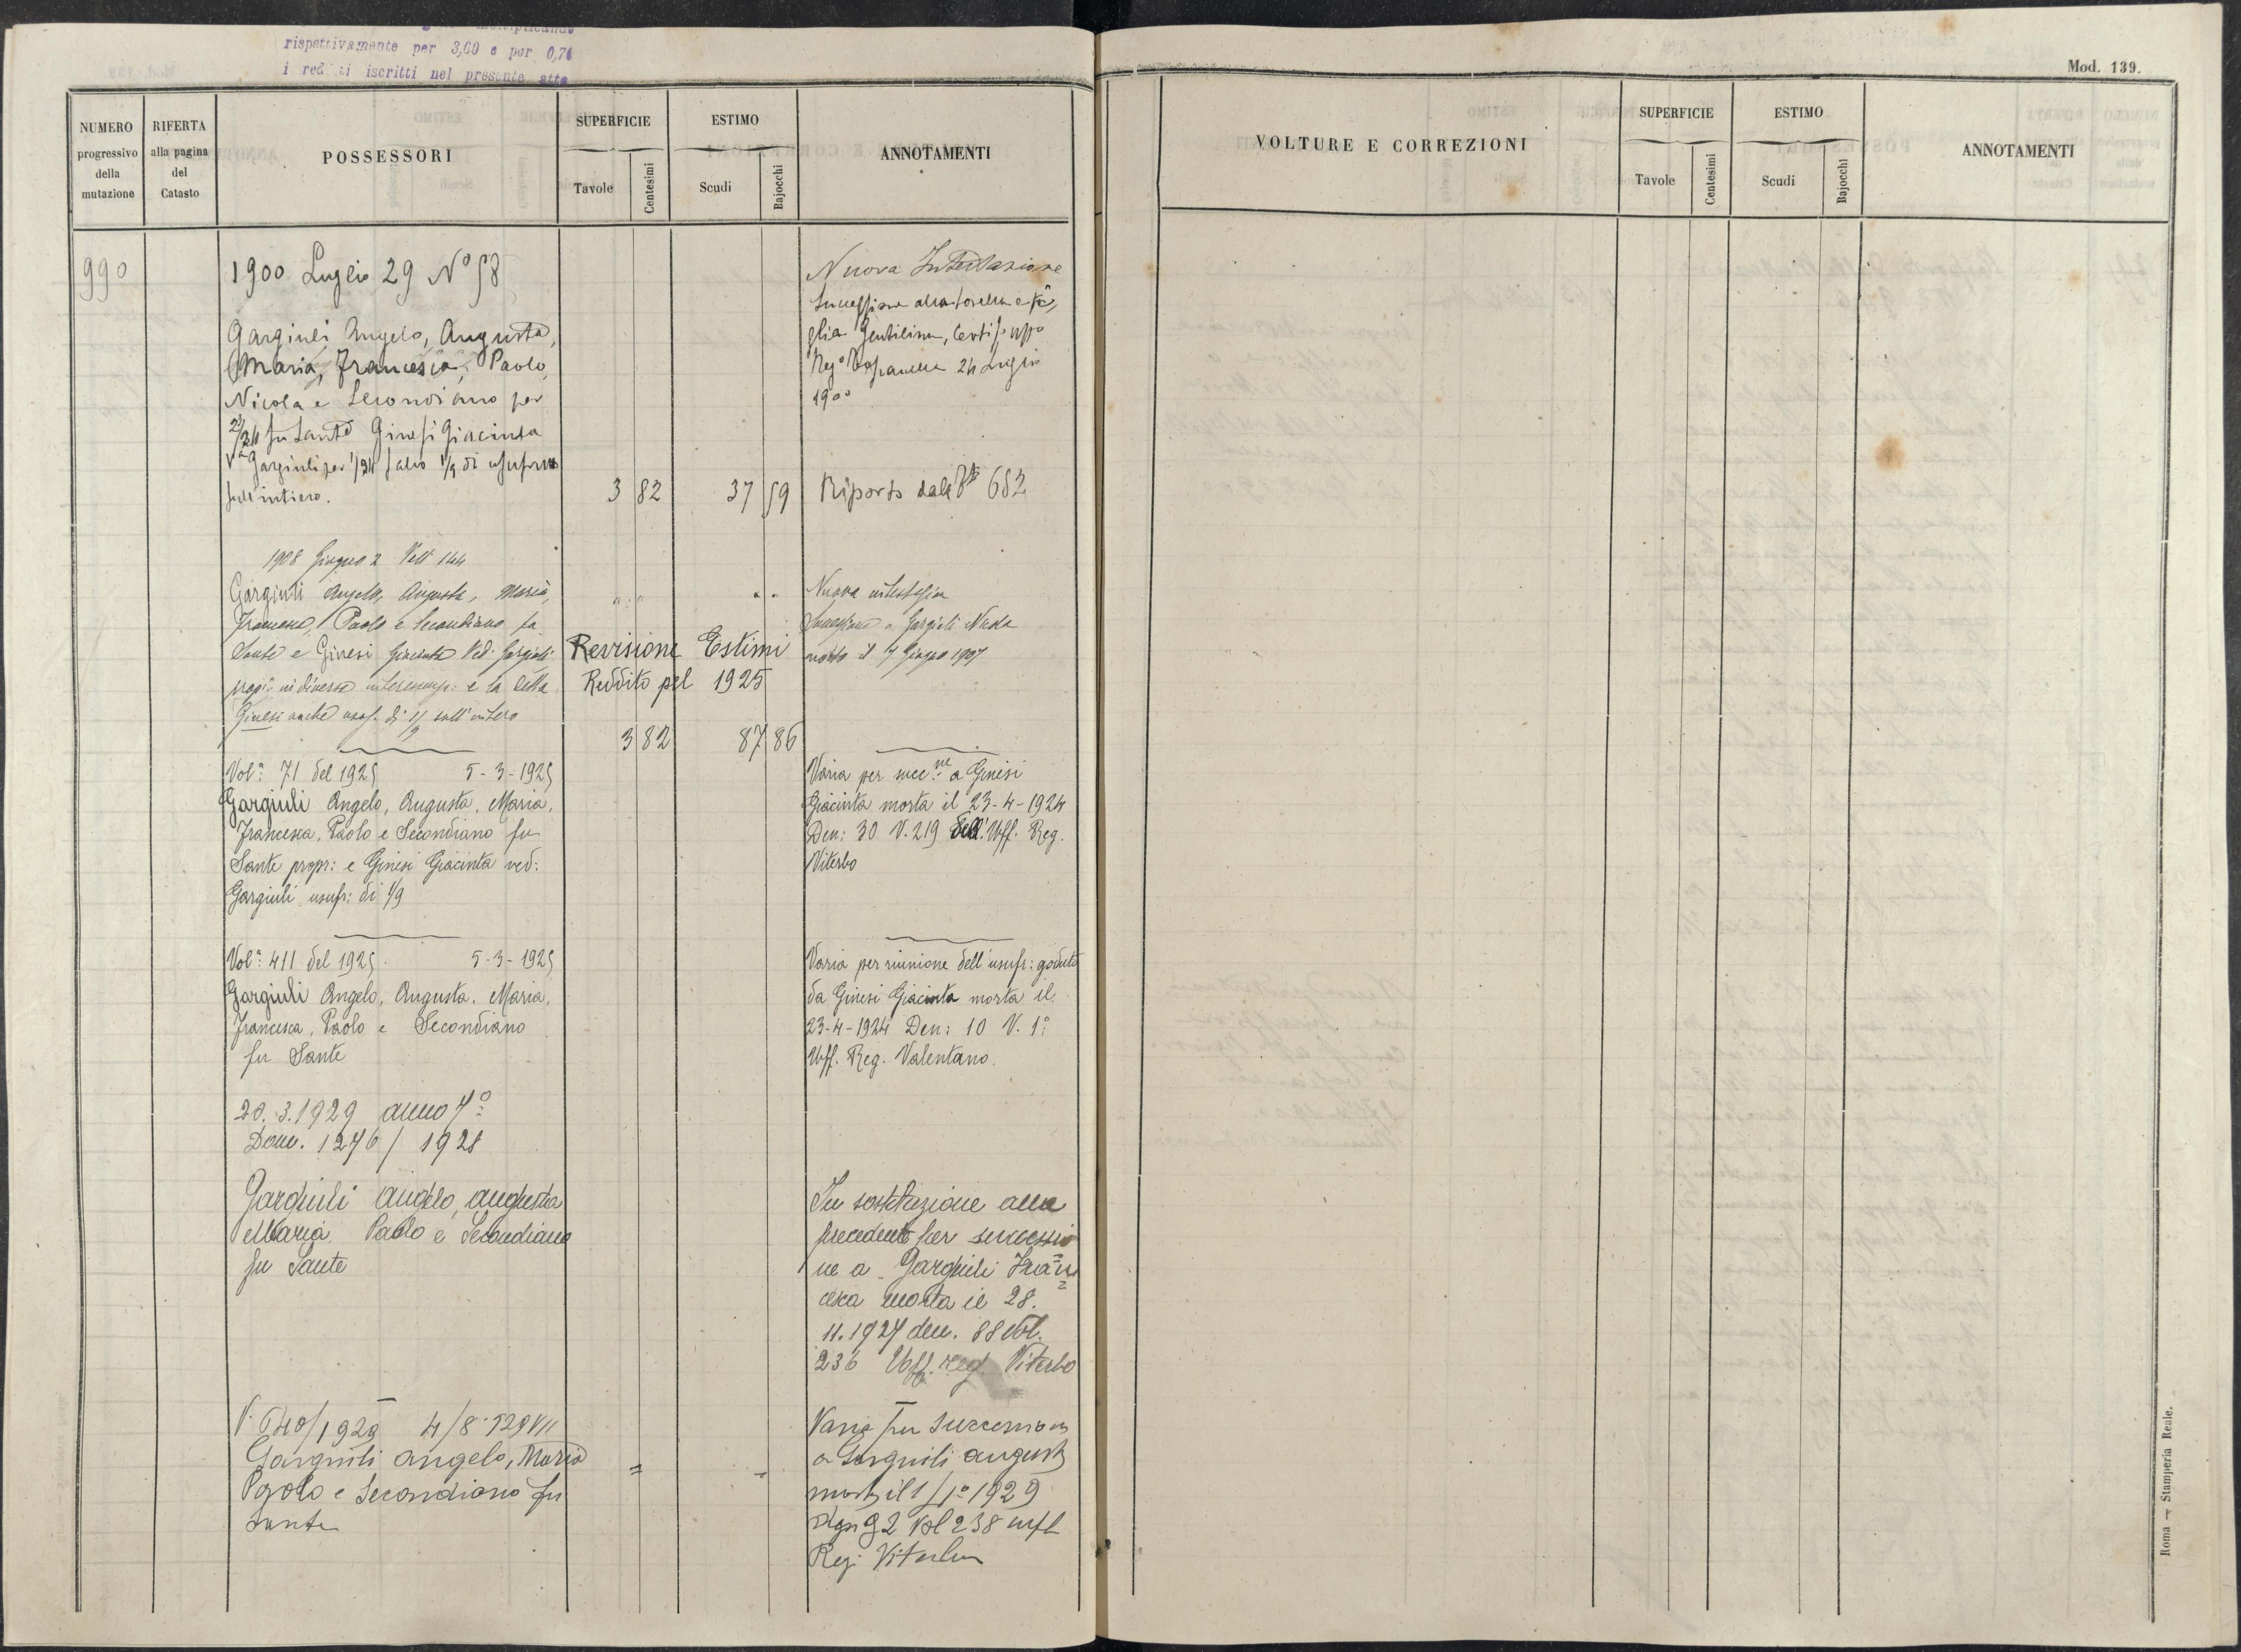 rispettivamente per 3,60 e per 0,76
i redditi iscritti nel presente atto
NUMERO progressivo della mutazione
RIFERTA alla pagina del Catasto
POSSESSORI
SUPERFICIE
Tavole
Centesimi
ESTIMO
Scudi
Bajocchi
ANNOTAMENTI
990
1900 Luglio 29 N° 58
Gargiuli Angelo, Augusta,
Maria, Francesca, Paolo,
Nicola e Secondiano per
23/24 fu Sante Ginesi Giacinta
Va Gargiuli per 1/24 salvo 1/9 di usufrutto
sull'intiero.
3 82
37 59
Nuova Intestazione
Successione alla sorella e fi
glia Gentilina, Certif. Uffo
Rego Toscanella 24 Luglio
1900
Riporto dalla Pta 652
1908 Giugno 2 Volt 144
Gargiuli Angelo, Augusta, Maria,
Francesca, Paolo e Secondiano fu
Sante e Ginesi Giacinta Ved: Gargiuli
propri indivisa e la detta
Ginesi anche usuf. di 1/9 sull'intero
Nuova
Successione a Gargiuli Nicola
morto il 7 Giugno 1907
Revisione Estimi
Reddito pel 1925
3 82
87 86
Vola: 71 del 1925 5-3-1925
Gargiuli Angelo, Augusta, Maria,
Francesca, Paolo e Secondiano fu
Sante propr: e Ginesi Giacinta ved:
Gargiuli usufr: di 1/9
Varia per succ:ne a Ginesi
Giacinta morta il 23-4-1924
Den: 30 V. 219 dell'Uff. Reg.
Viterbo
Vola: 411 del 1925. 5-3-1925
Gargiuli Angelo, Augusta, Maria,
Francesca, Paolo e Secondiano
fu Sante
Varia per riunione dell'usufr: goduto
da Ginesi Giacinta morta il
23-4-1924 Den: 10 V. 1°
Uff. Reg. Valentano.
20.3.1929 anno 7°
Dom. 1276/1928
Gargiuli Angelo, Augusta
Maria, Paolo e Secondiano
fu Sante
In sostituzione alla
precedente per successio
ne a Gargiuli Fran
cesca morta il 28.
11.1927 den. 88 Vol.
236 Uff. reg. Viterbo
V. 640/1929 4/8-929 VII
Gargiuli Angelo, Maria
Paolo e Secondiano fu
Sante
Varia per successione
a Gargiuli Augusta
morta il 1/1° 1929
92 Vol 238 uff
Reg. Viterbo
Mod. 139.
VOLTURE E CORREZIONI
SUPERFICIE
Tavole
Centesimi
ESTIMO
Scudi
Bajocchi
ANNOTAMENTI
Roma — Stamperia Reale.